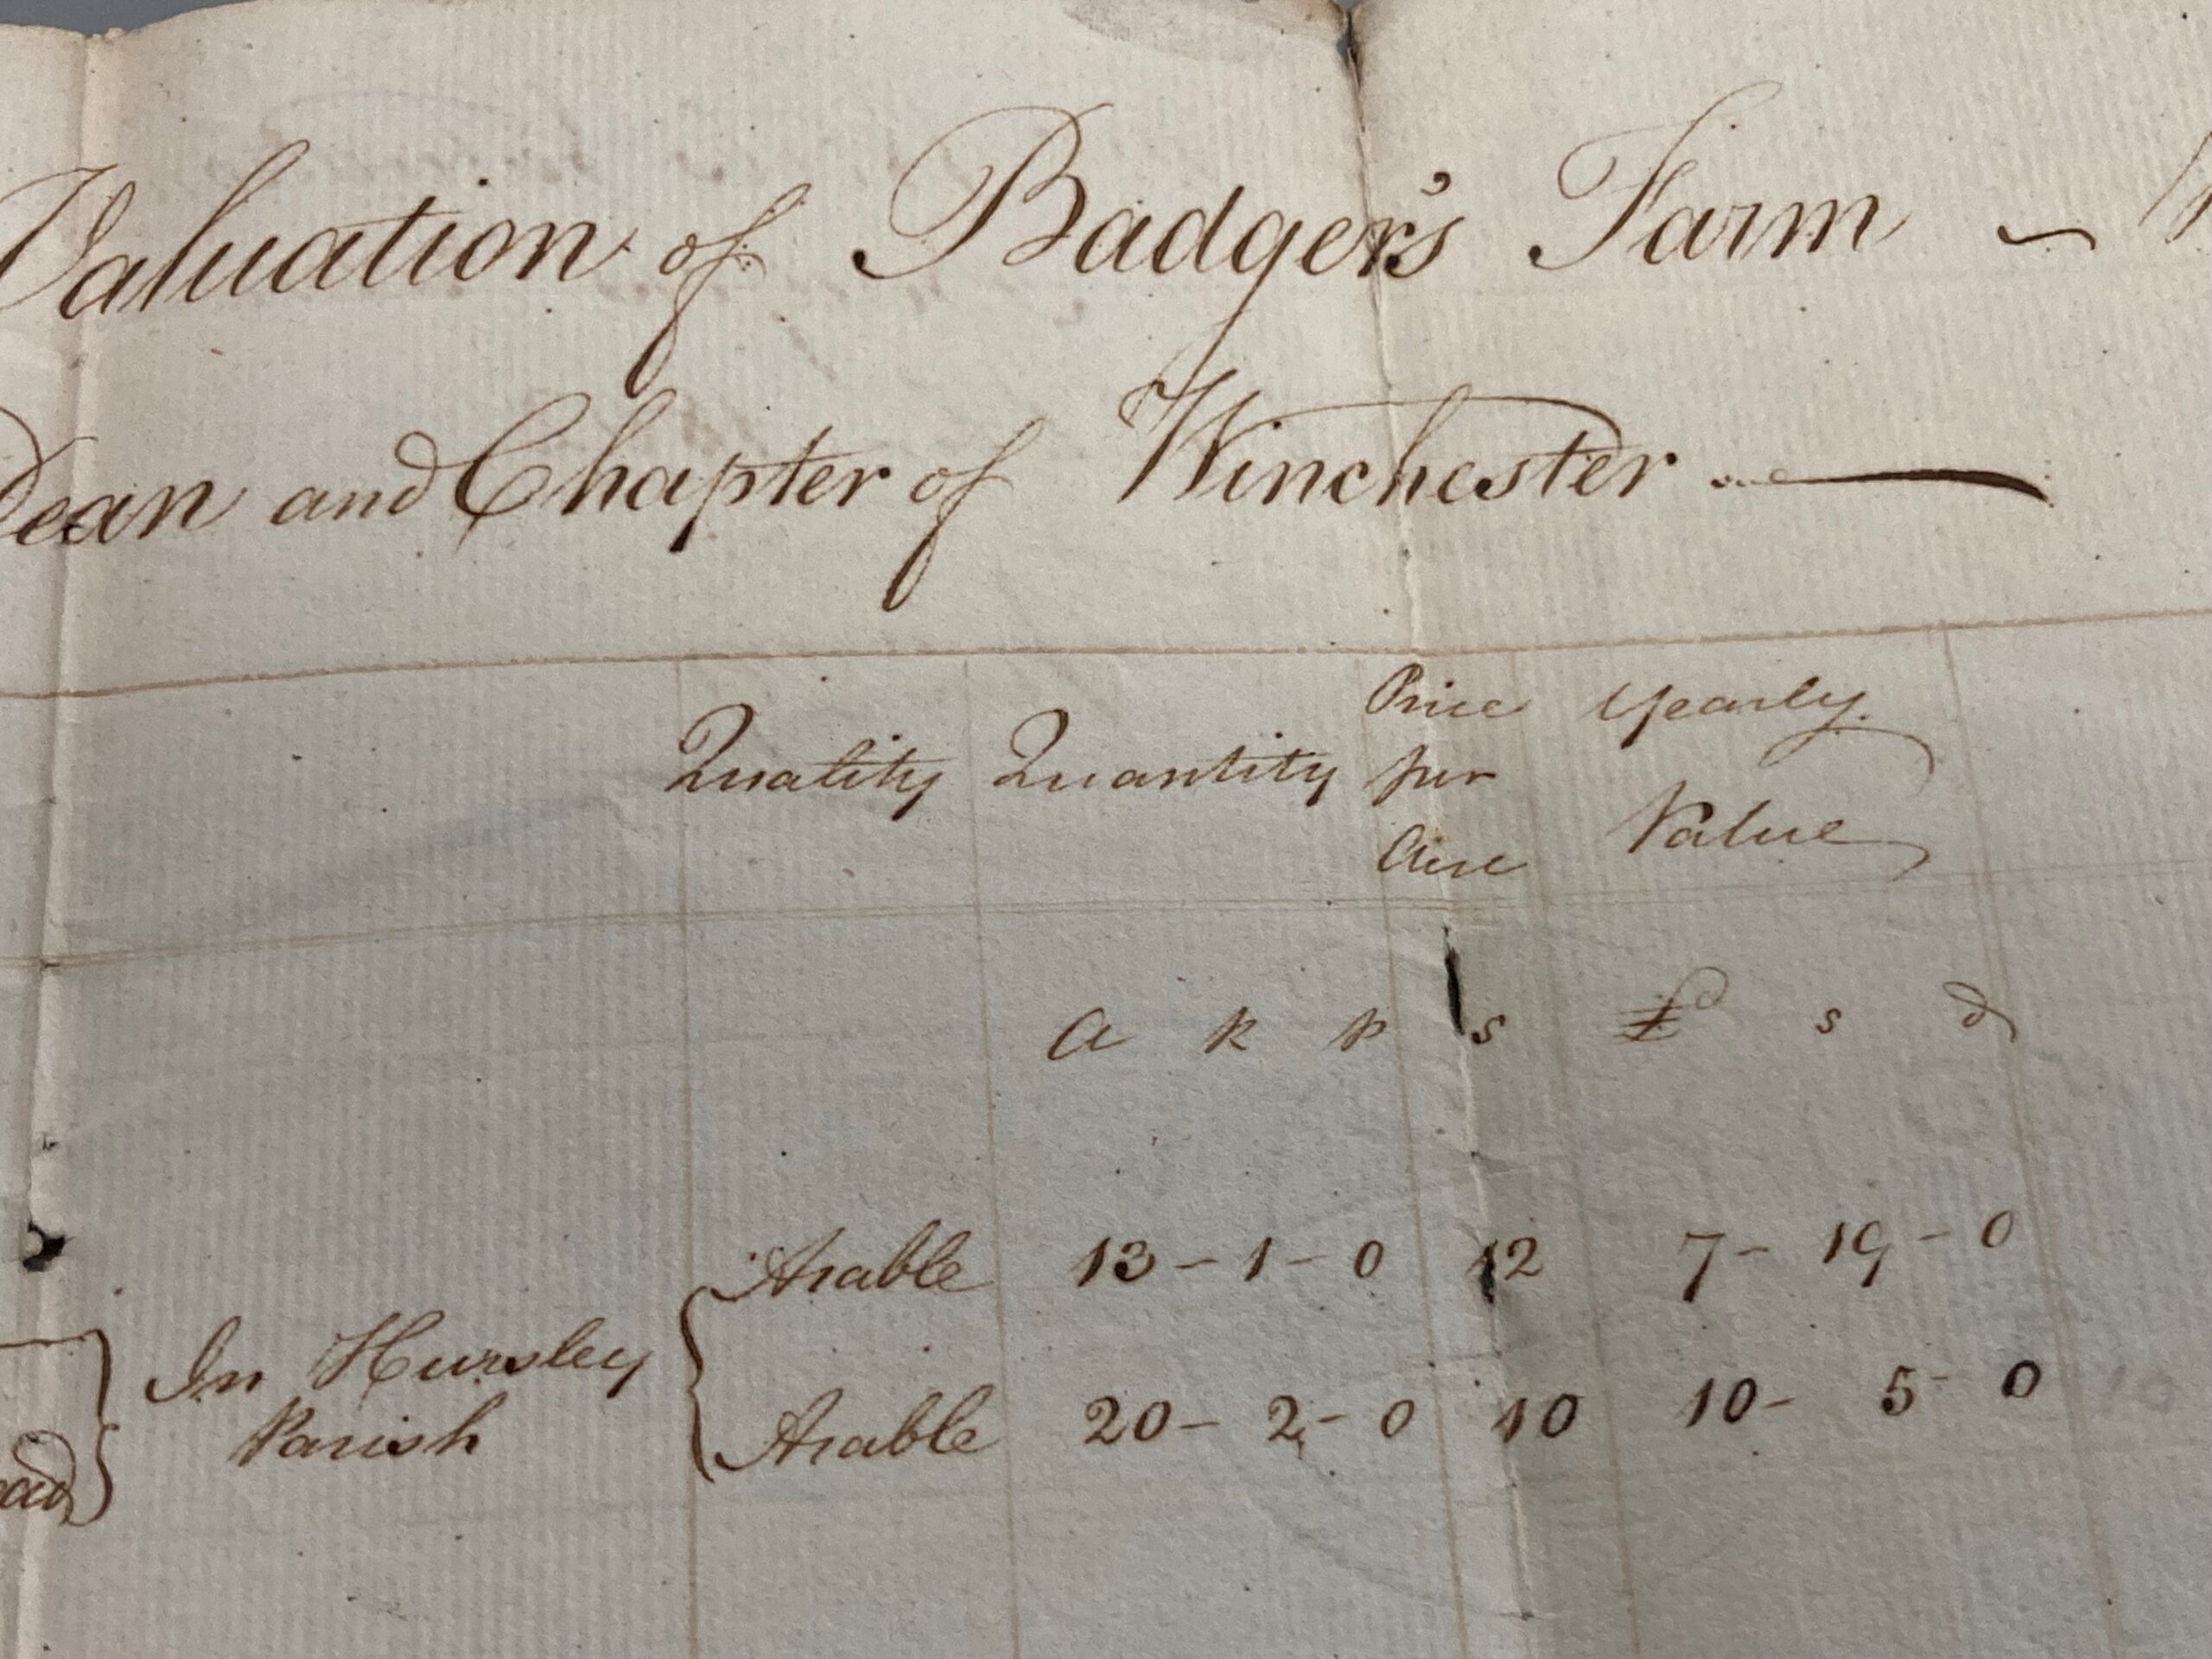 Valuation of Badger's Farm ~
Dean and Chapter of Winchester
Quality Quantity Price per Acre Yearly Value
A R P s £ s d
Arable 13 - 1 - 0 12 7 - 19 - 0
In Hursley
Parish
Arable 20 - 2 - 0 10 10 - 5 - 0